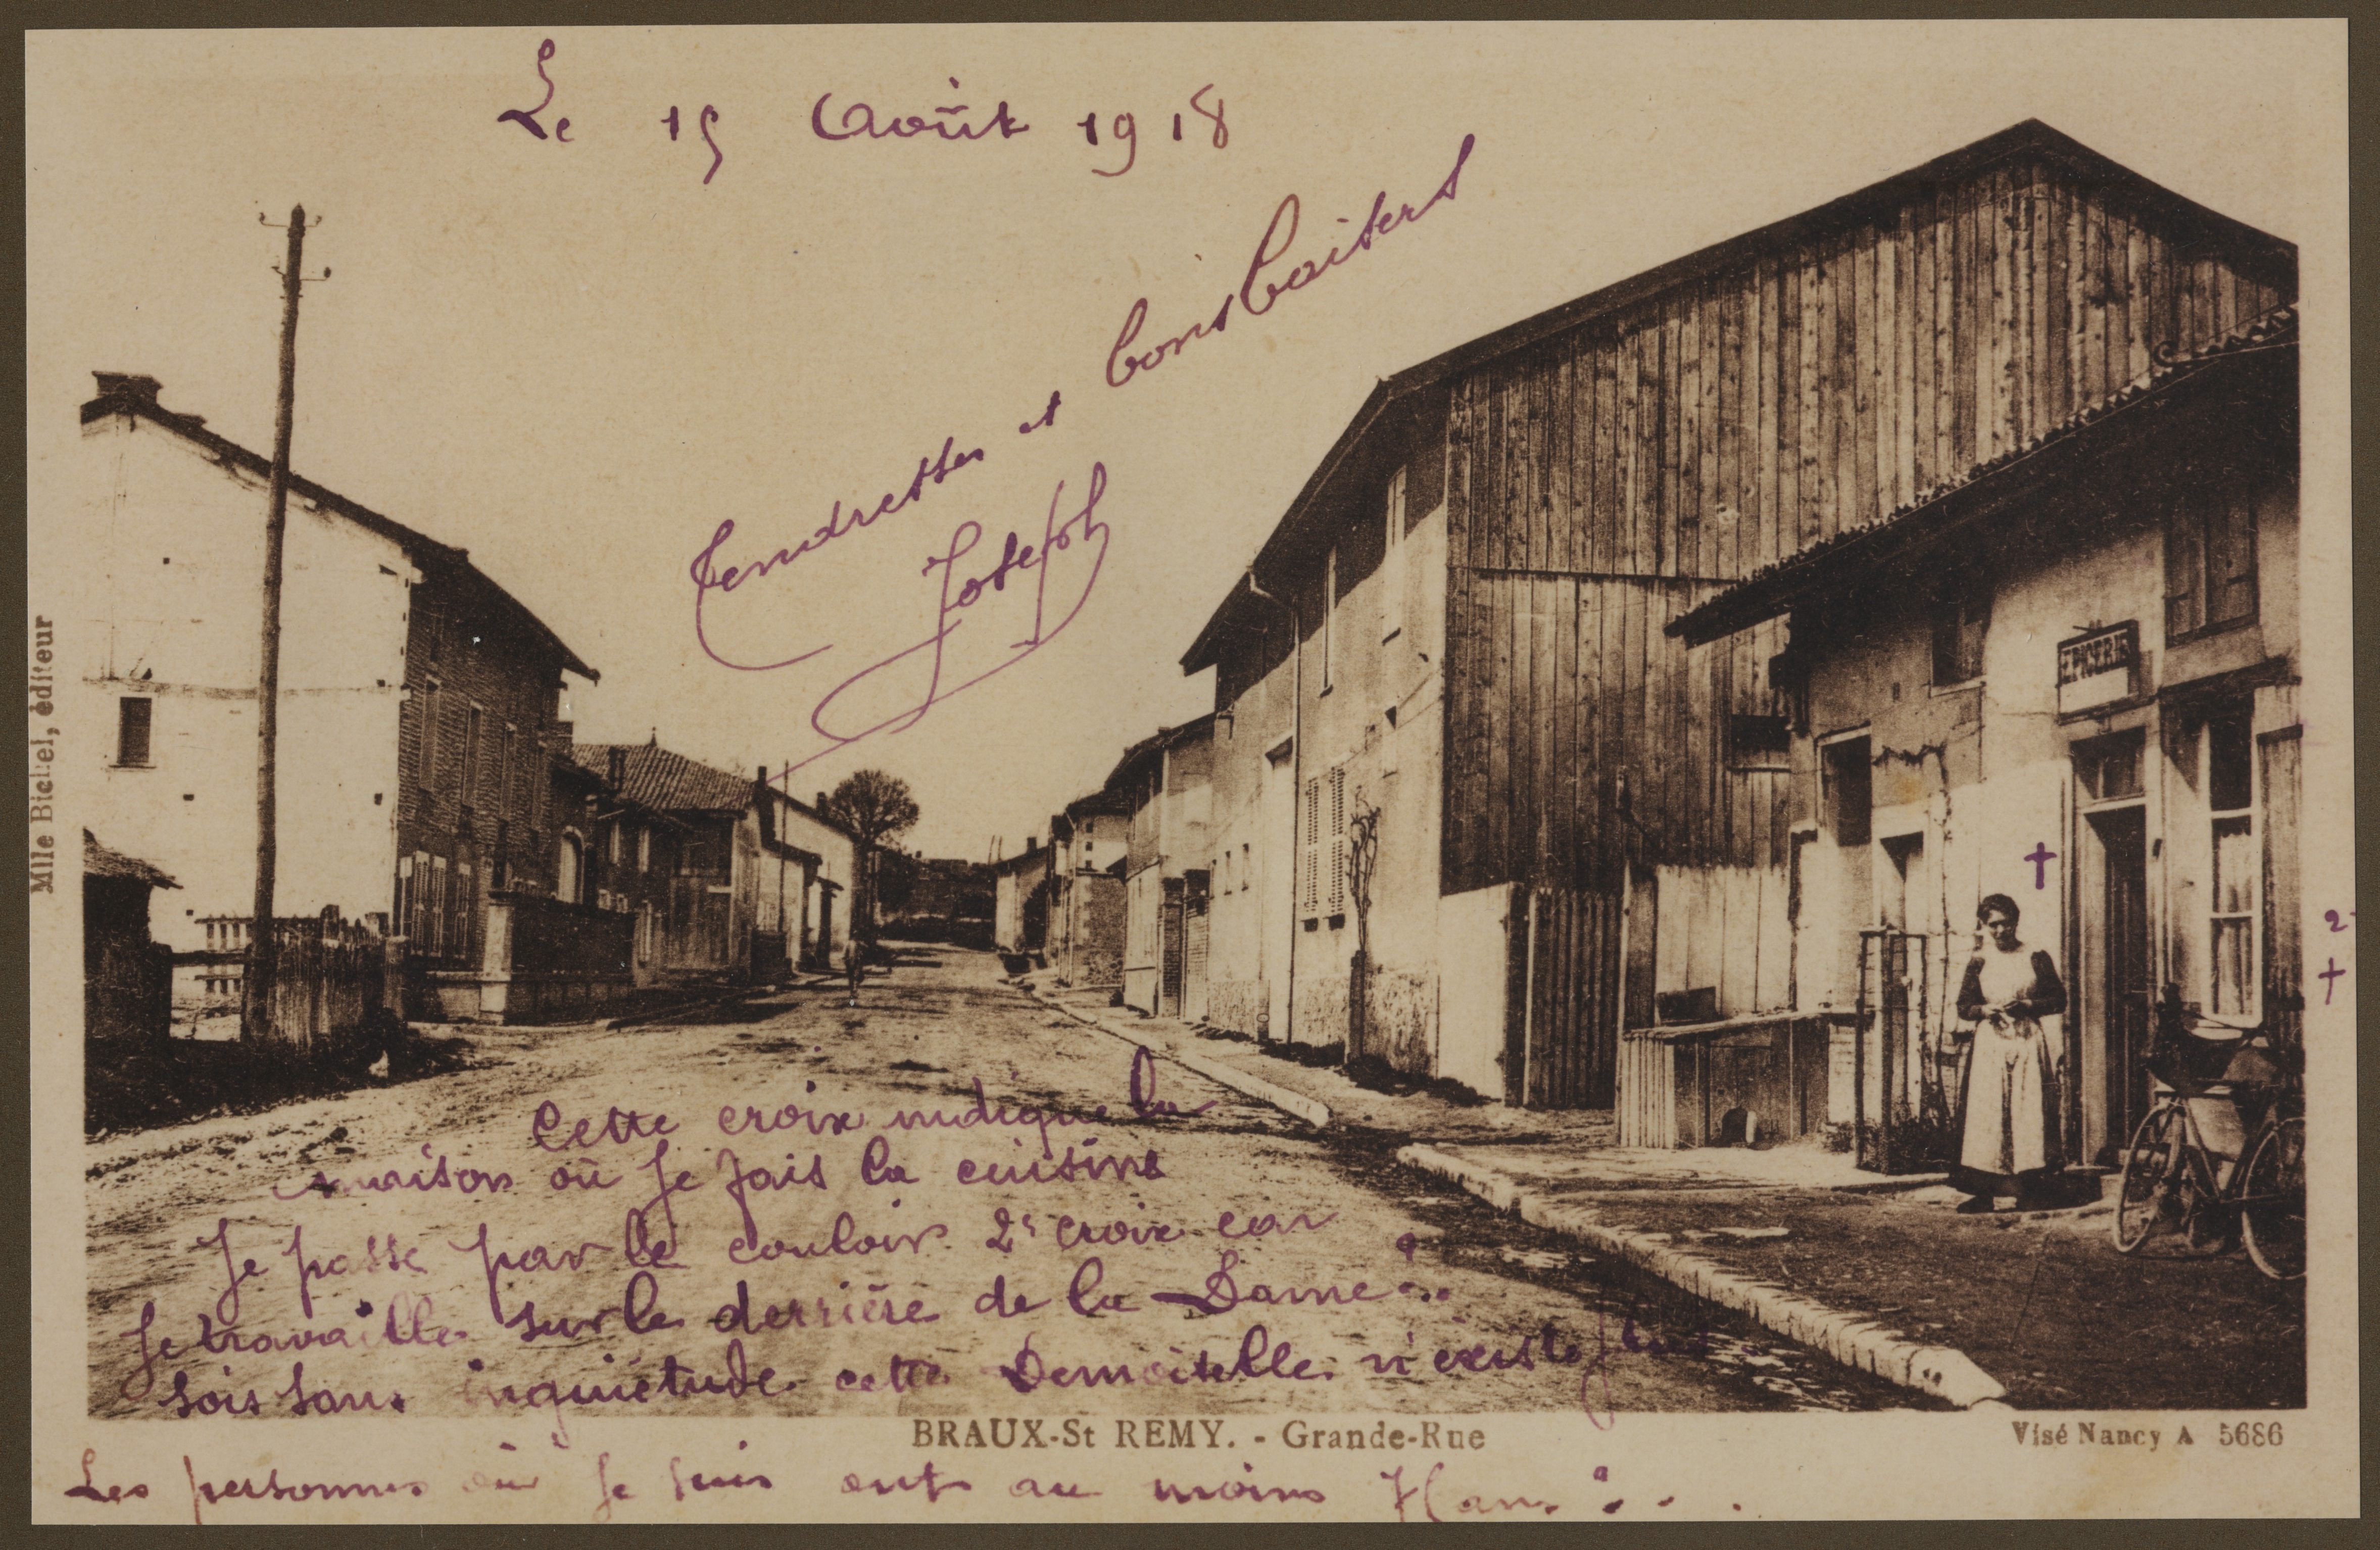 Le 15 Août 1918
Tendresses et bons baisers
Joseph
EPICERIE
Mlle Bichel, éditeur
†
2
†
Cette croix indique la
maison où Je fais la cuisine
Je passe par le couloir 2e croix car
Je travaille sur le derrière de la Dame
sois sans inquiétude cette Demoiselle n'existe plus
BRAUX-St REMY. - Grande-Rue
Visé Nancy A 5686
Les personnes où Je suis ont au moins ans